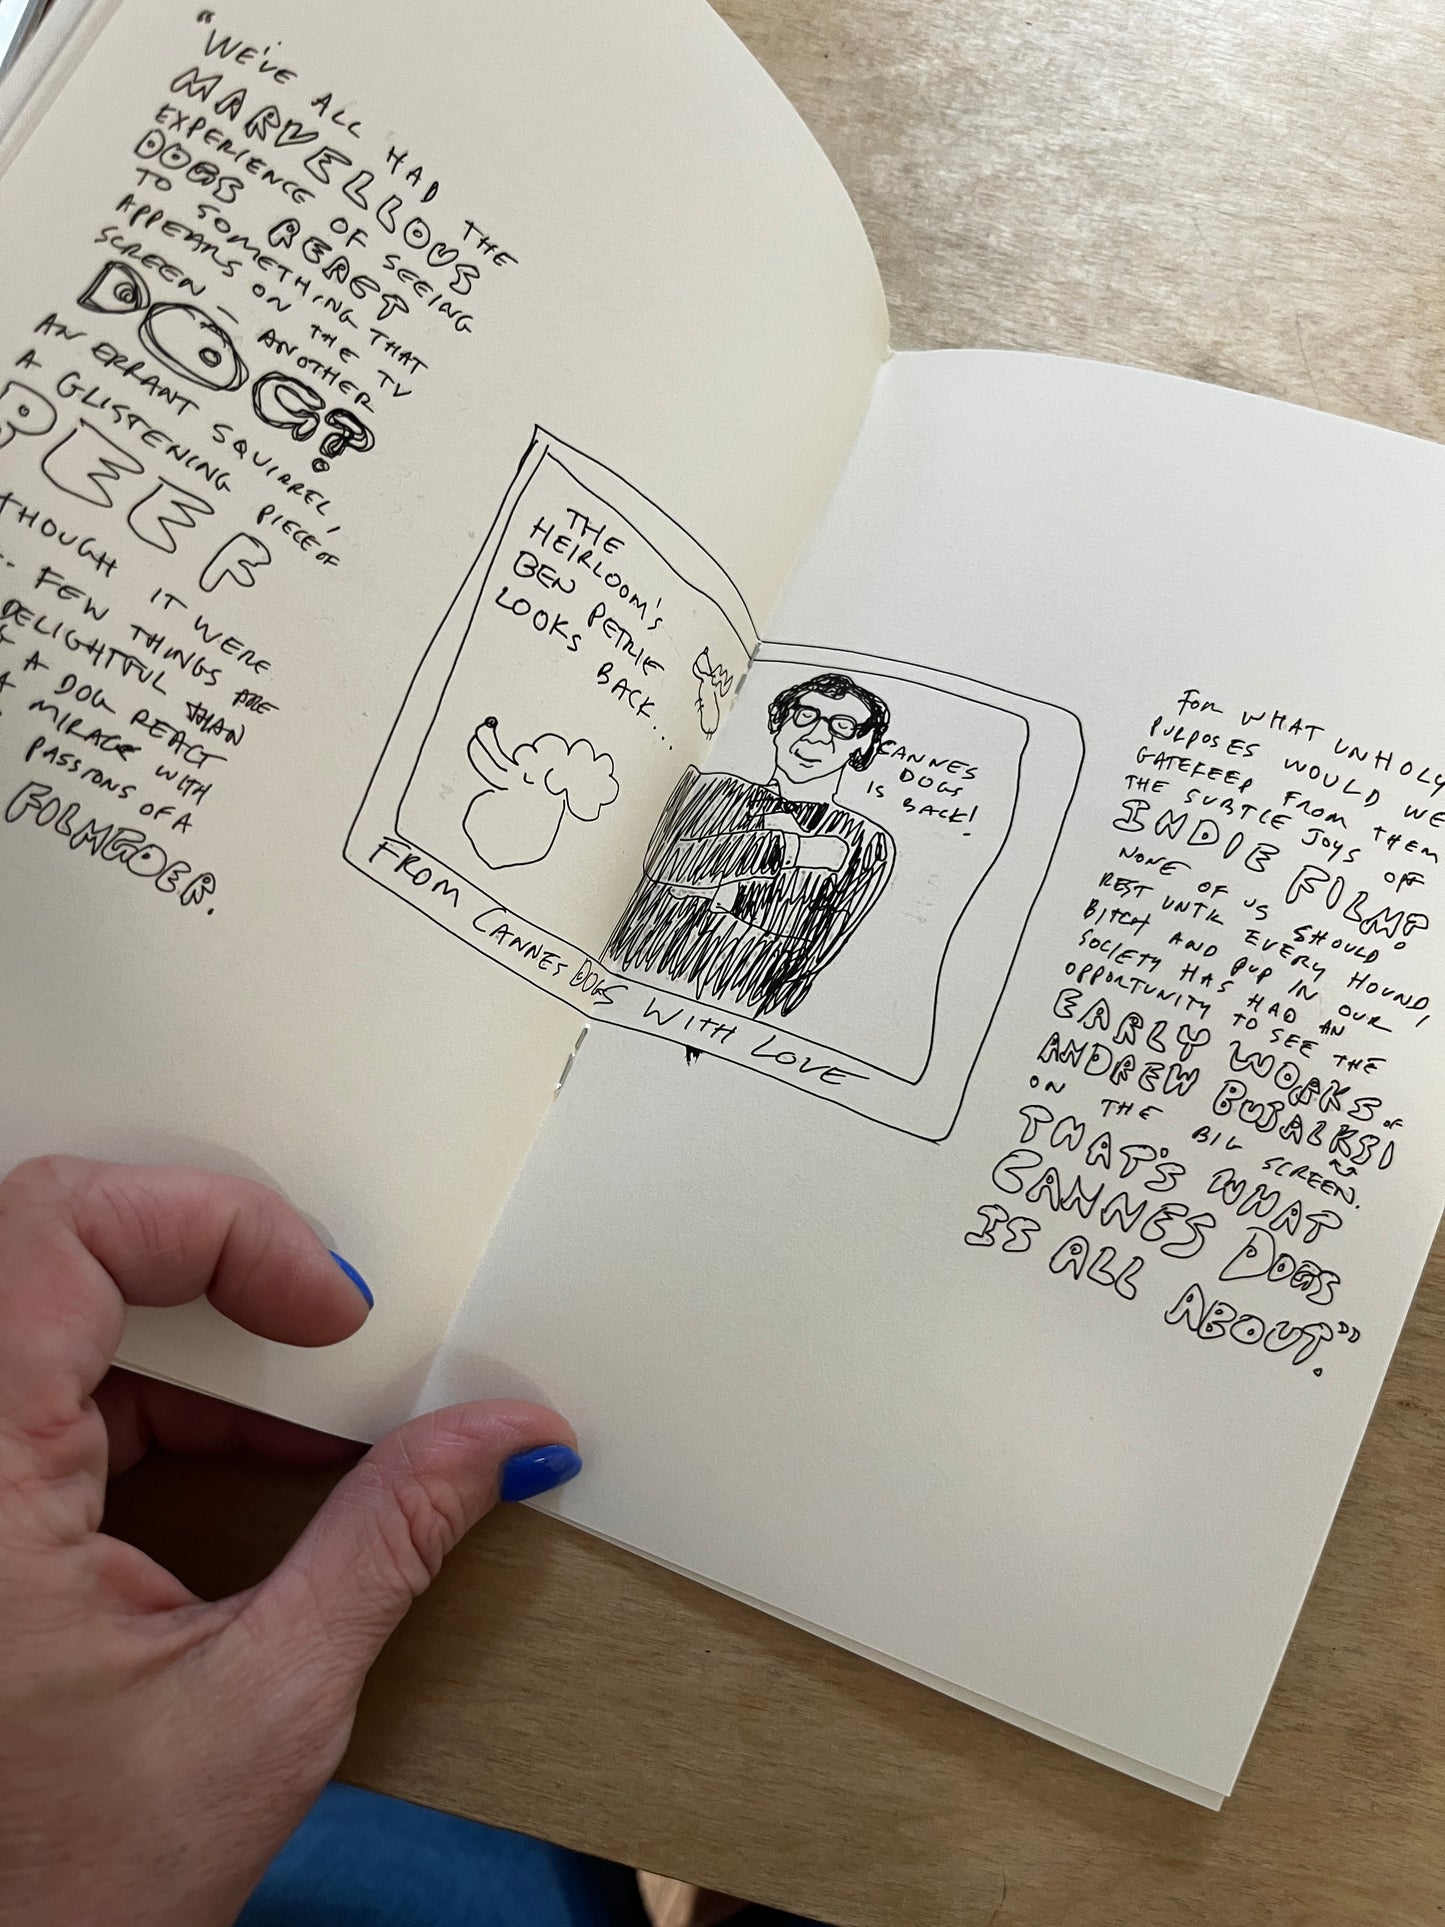 "WE'VE ALL HAD THE
MARVELLOUS
EXPERIENCE OF SEEING
DOGS REACT
TO SOMETHING THAT
APPEARS ON THE TV
SCREEN – ANOTHER
DOG?
AN ERRANT SQUIRREL,
A GLISTENING PIECE OF
BEEF
THOUGH IT WERE
FEW THINGS ARE
DELIGHTFUL THAN
A DOG REACT
A MIRAGE WITH
PASSIONS OF A
FILMGOER.
THE
HEIRLOOM'S
BEN PETRIE
LOOKS BACK...
CANNES
DOGS
IS BACK!
FROM CANNES DOGS WITH LOVE
FOR WHAT UNHOLY
PURPOSES WOULD WE
GATEKEEP FROM THEM
THE SUBTLE JOYS OF
INDIE FILM?
NONE OF US SHOULD
REST UNTIL EVERY HOUND,
BITCH AND PUP IN OUR
SOCIETY HAS HAD AN
OPPORTUNITY TO SEE THE
EARLY WORKS OF
ANDREW BUJALSKI
ON THE BIG SCREEN.
THAT'S WHAT
CANNES DOGS
IS ALL ABOUT."